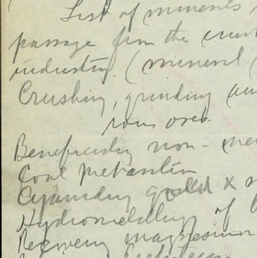 List of minerals
passage from the crust
industry. (mineral
Crushing, grinding
iron ores
Beneficiating non-me
Coal
Cyaniding gold x
Hydrometallurgy of
Recovery magnesium